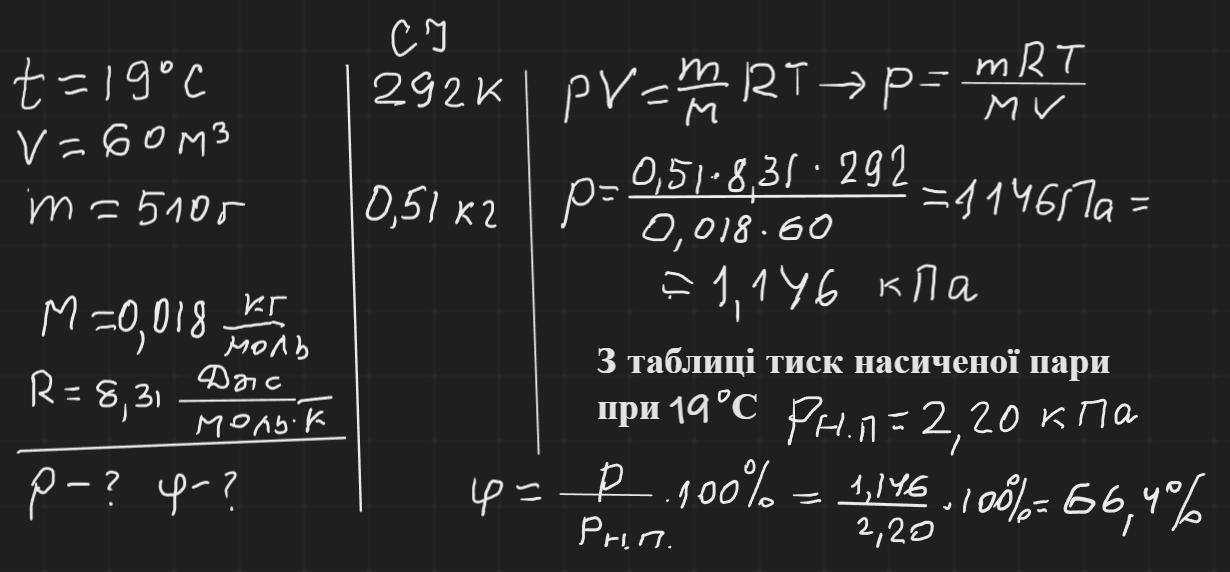 СІ
t = 19°C
V = 60 м³
m = 510 г
M = 0,018 кг/моль
R = 8,31 Дж/моль·К
p - ? φ - ?
292 К
0,51 кг
pV = m/M RT → p = mRT/MV
p = 0,51·8,31·292/0,018·60 = 1146 Па =
= 1,146 кПа
З таблиці тиск насиченої пари
при 19°C pн.п = 2,20 кПа
φ = p/pн.п. · 100% = 1,146/2,20 · 100% = 66,4%